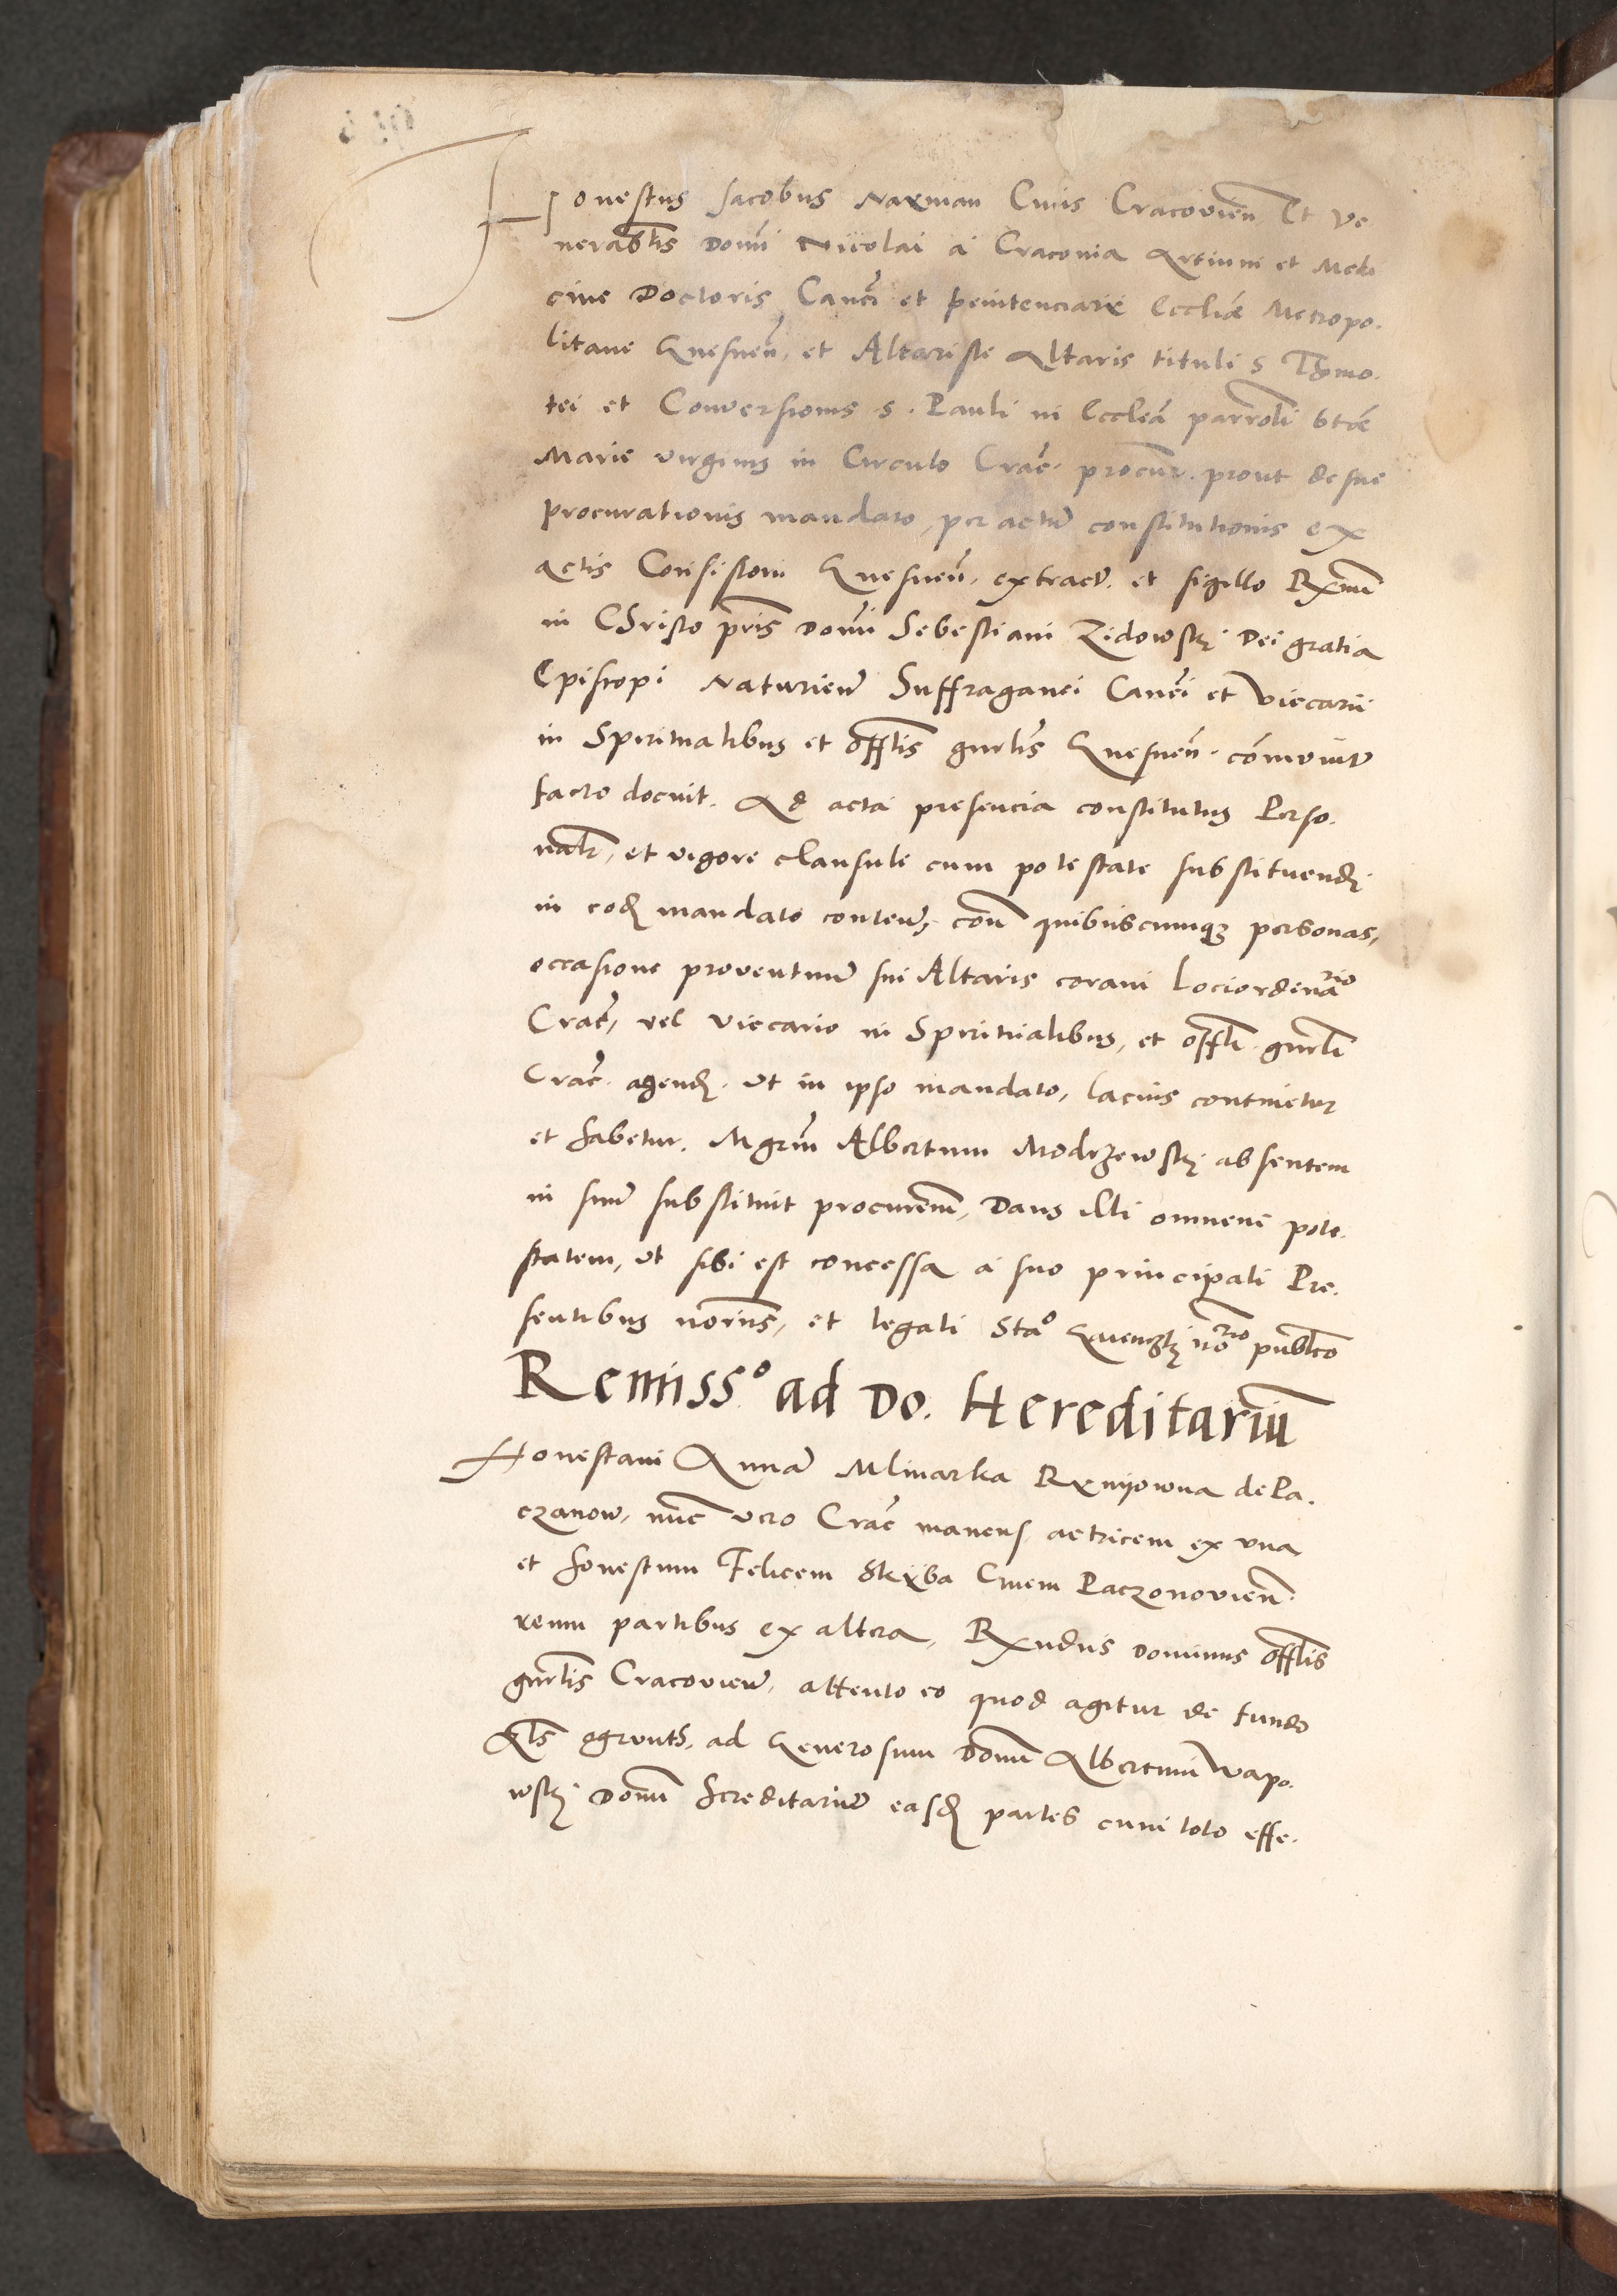 Honestus Jacobus Naxman Ciuis Cracovien Et Ve
nerablis Domi Nicolai a Craconia Artium et Medi
cine Doctoris Canci et penitenciarii Eccliae Metropo.
litane Gnesnen, et Altariste Altaris tituli S Thymo.
tei et Conversionis S. Pauli in Ecclea parroli btae
Marie virginis in Circulo Crac. procur. prout de sue
procurationis mandato, per actum constitutionis ex
actis Consistorii Gnesnen. extract. et sigillo Rxmi
in Christo pris Domi Sebestiani Zidowskj Dei gratia
Episcopi Naturien Suffraganei Canci et Viecarii
in Spiritualibus et offlis gnrlis Gnesnen. communit
facto docuit. Ad acta presencia constitutus Perso.
nalr, et vigore clausule cum potestate substituendj
in eod mandato content, con quibuscumqz personas,
occasione proventuum sui Altaris coram Lociordinario
Crac, vel Viecario in Spiritualibus, et offli gnrli
Crac. agend. Ut in ipso mandato, lacius continetur
et habetur. Mgrm Albertum Modrzewskj absentem
in suum substituit procurem, Dans illi omnem pote.
statem, ut sibi est concessa a suo principali Pre.
sentibus noriis, et legali Stao  norio publico
Remisso ad Do. Hereditarium
Honestam Annam Mlinarka Rxmijowna de Pa.
czanow, nunc vero Crac manens actricem ex una
et honestum Felicem Skyba Civem Paczonovien.
reum partibus ex altera, Rxndus Dominus offlis
gnrlis Cracovien, attento eo quod agitur de fundo
Als ogrunth, ad Generosum Domi Albertum Wapo.
wskj Domi hereditarium easd partes cum toto effe.